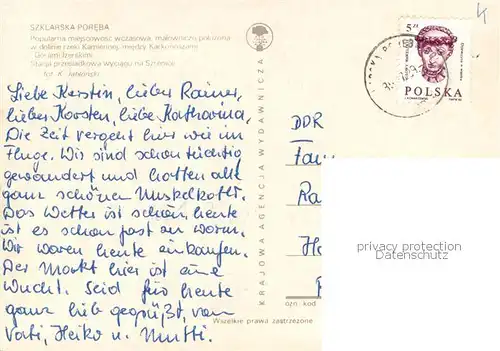 SZKLARSKA PORĘBA
Popularna miejscowość wczasowa, malowniczo położona
w dolinie rzeki Kamiennej między Karkonoszami
i Górami Izerskimi
Stacja przesiadkowa wyciągu na Szrenicę
fot. K. Jabłoński
Liebe Kerstin, lieber Rainer,
lieber Karsten, liebe Katharina,
Die Zeit vergeht hier wie im
Fluge. Wir sind schon tüchtig
gewandert und hatten alle
ganz schönen Muskelkater.
Das Wetter ist schön, heute
ist es schon fast zu warm.
Wir waren heute einkaufen.
Der Markt hier ist eine
Wucht. Seid für heute
ganz lieb gegrüßt, von
Vati, Heiko u. Mutti.
KRAJOWA AGENCJA WYDAWNICZA
Wszelkie prawa zastrzeżone
5 zł
POLSKA
DDR
Ra
ozn. kod
property of
watermark protected